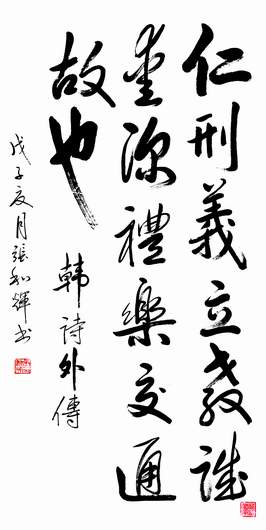 仁刑義立教誠
愛深禮樂交通
故也
韓詩外傳
戊子夏月張和輝书